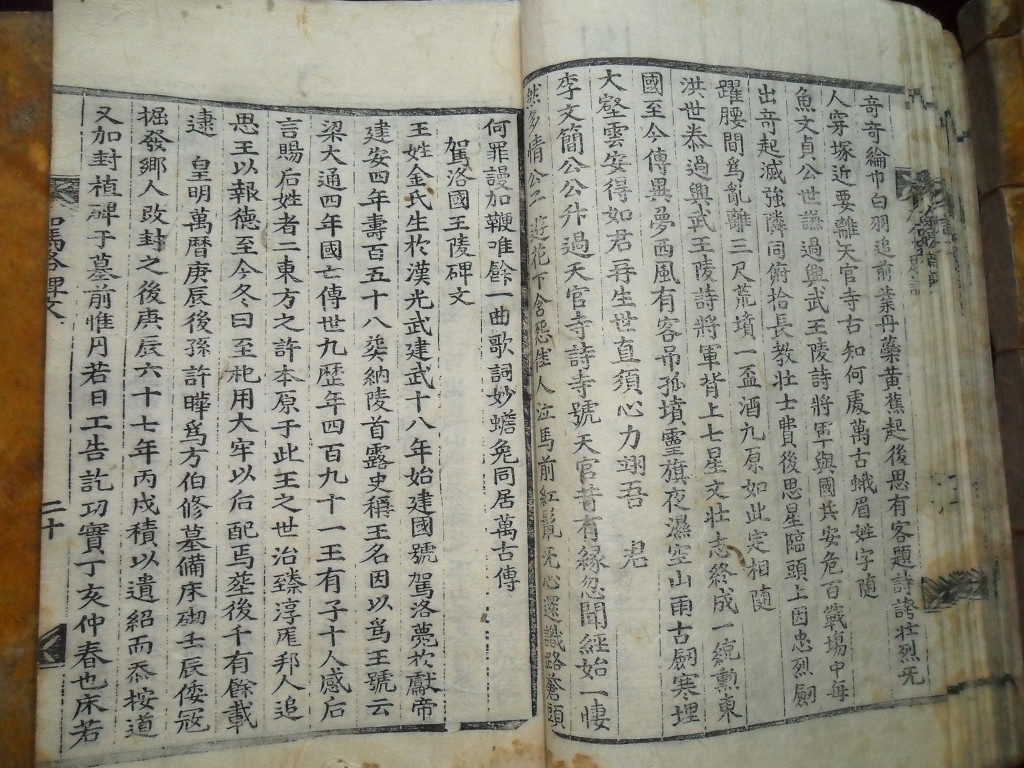 奇奇綸巾白羽追前葉丹藥黃蕉起後思有客題詩誇壯烈無
人穿塚近要離天官寺古知何處萬古蛾眉姓字隨
魚文貞公世謙過興武王陵詩將軍與國共安危百戰塲中每
出奇起滅強隣同俯拾長教壯士費後思星臨頭上因忠烈劒
躍腰間爲亂離三尺荒墳一盃酒九原如此定相隨
洪世泰過興武王陵詩將軍背上七星文壯志終成一統勳東
國至今傳異夢西風有客吊孤墳靈旗夜濕空山雨古劒寒埋
大壑雲安得如君再生世直須心力翊吾君
李文簡公公升過天官寺詩寺號天官昔有緣忽聞經始一悽
然多情公子遊花下含怨佳人泣馬前紅鬣无心還識路蒼頭
何罪謾加鞭唯餘一曲歌詞妙蟾免同居萬古傳
駕洛國王陵碑文
王姓金氏生於漢光武建武十八年始建國號駕洛薨於獻帝
建安四年壽百五十八塟納陵首露史稱王名因以爲王號云
梁大通四年國亡傳世九歷年四百九十一王有子十人感后
言賜后姓者二東方之許本原于此王之世治臻淳厖邦人追
思王以報德至今冬曰至祀用大牢以后配焉塟後千有餘載
逮 皇明萬曆庚辰後孫許曄爲方伯修墓備床砌壬辰倭冦
掘發鄉人改封之後庚辰六十七年丙戌積以遺紹而忝按道
又加封植碑于墓前惟月若日工告訖功實丁亥仲春也床若
二十